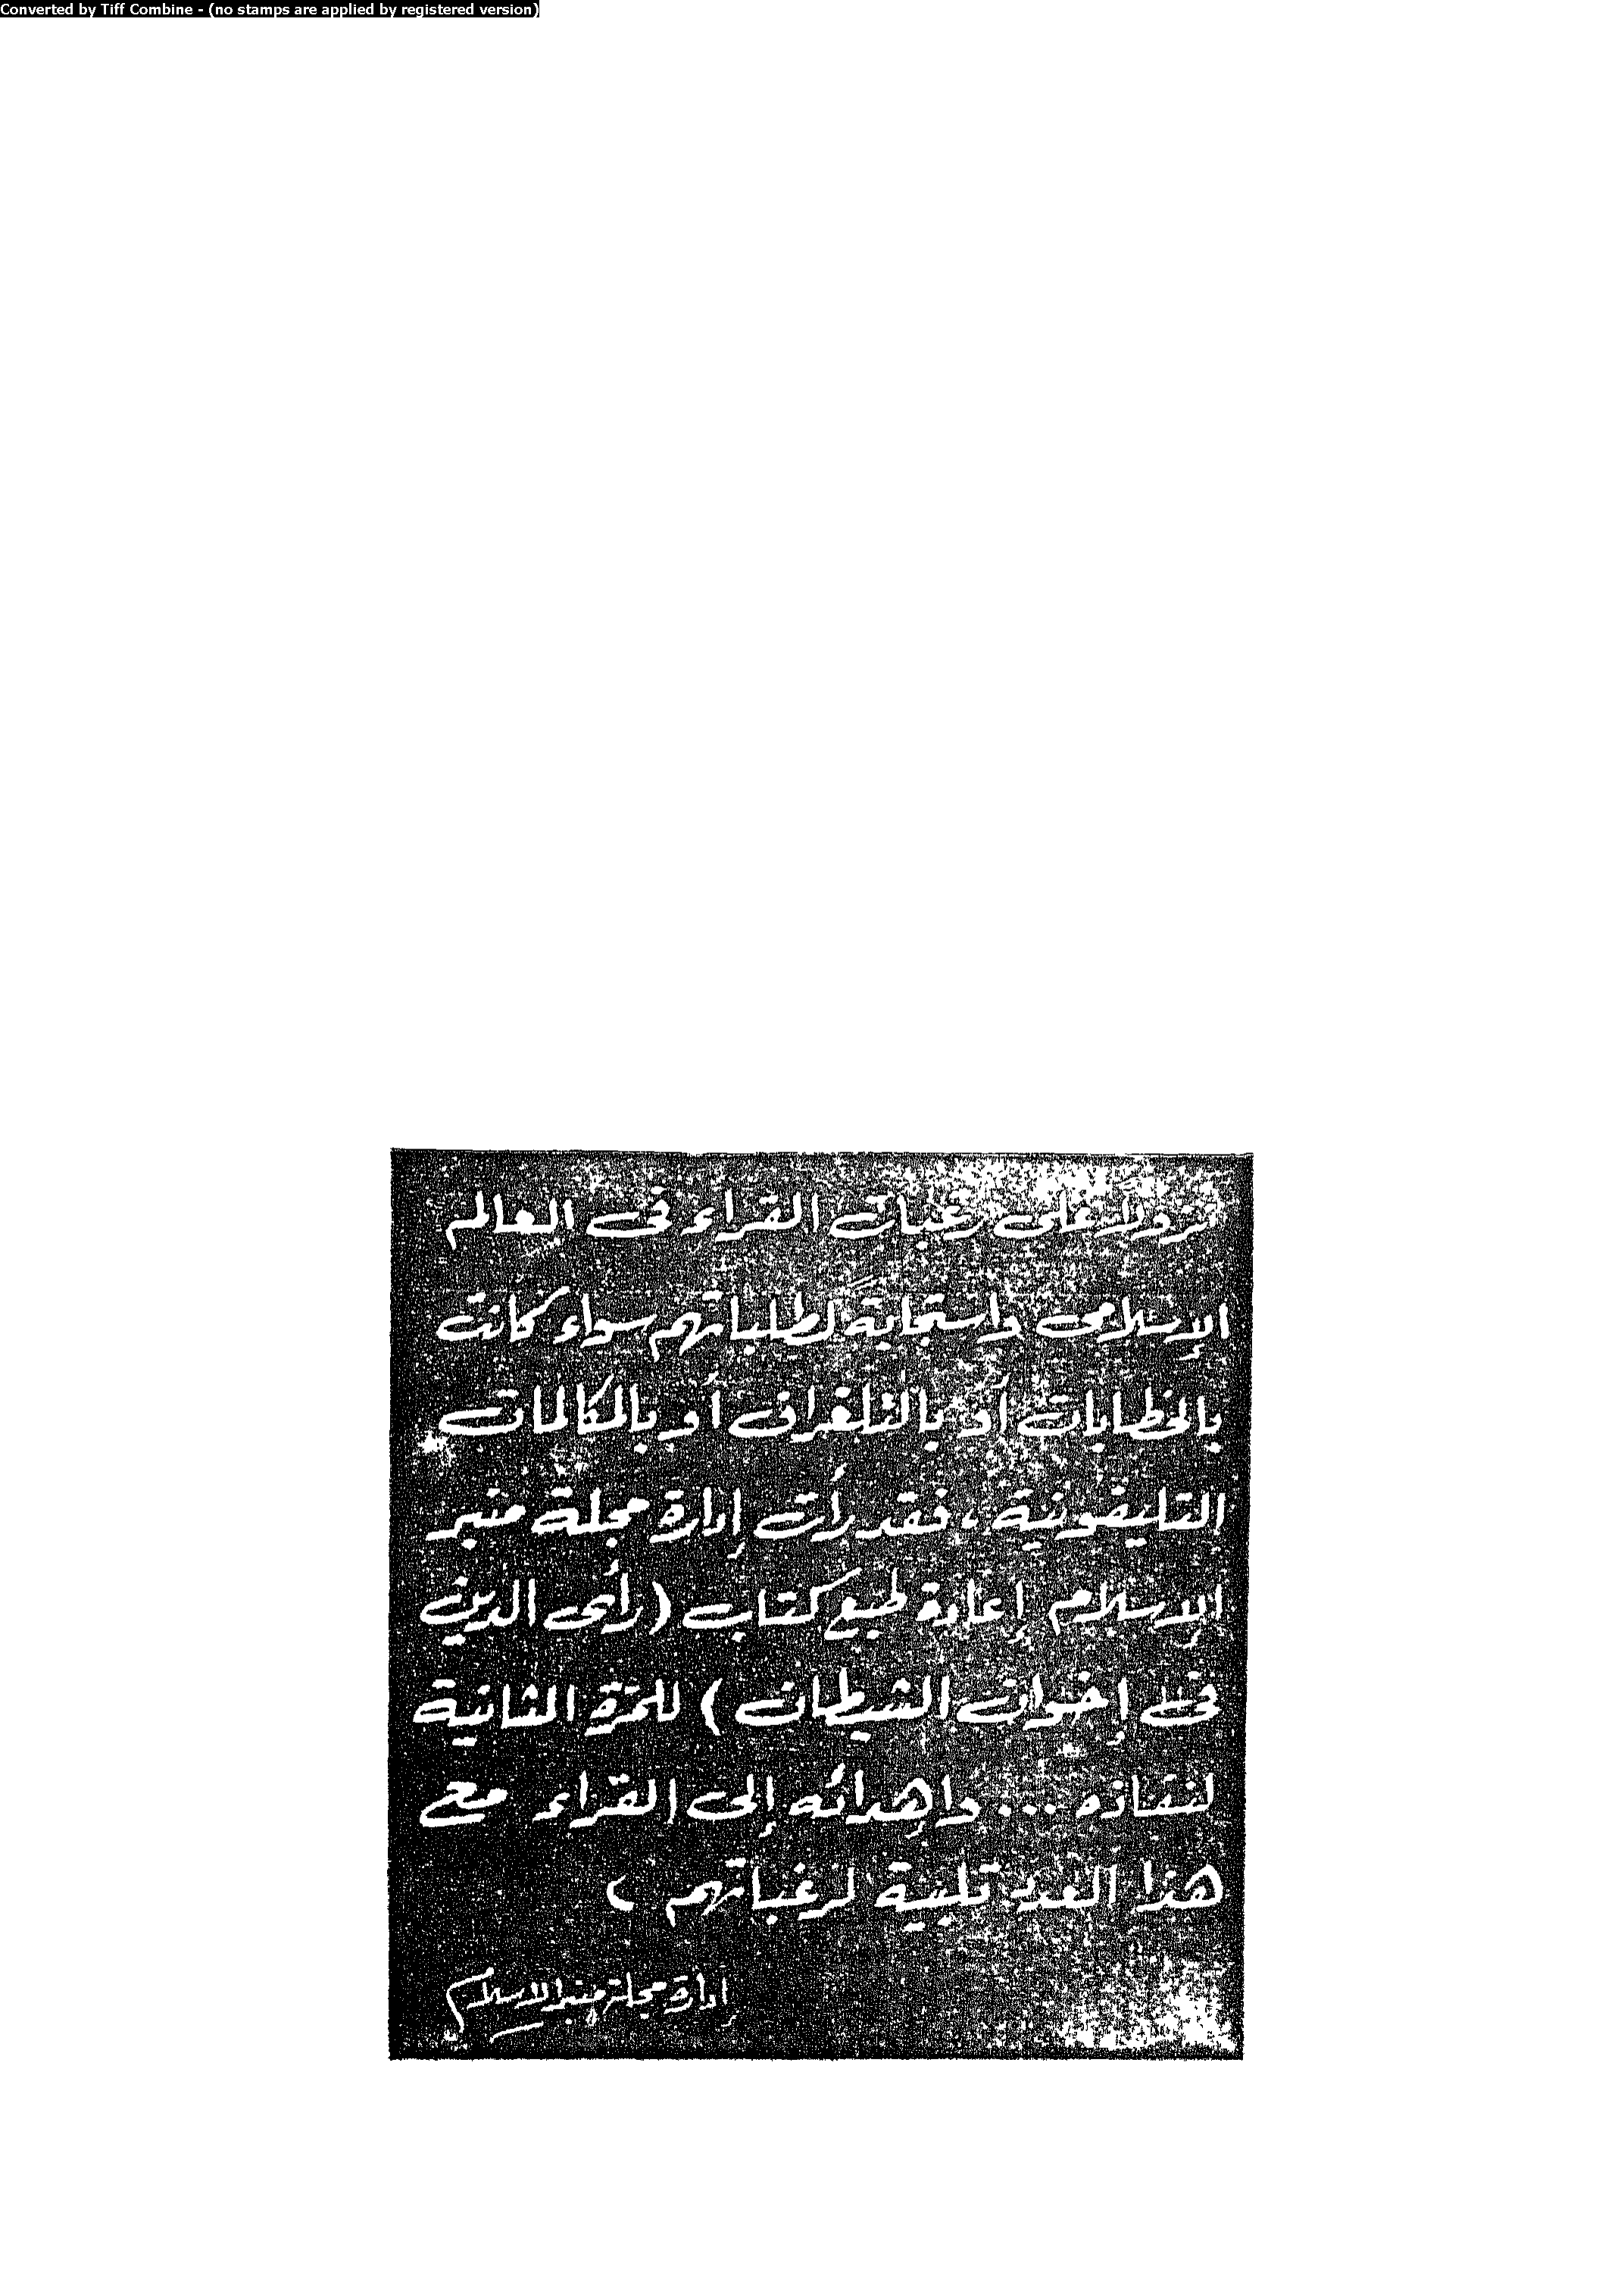 Converted by Tiff Combine - (no stamps are applied by registered version)
نزولاً على رغبات القراء فى العالم
الإسلامى واستجابة لطلباتهم سواء كانت
بالخطابات أو بالتلغراف أو بالمكالمات
التليفونية، فقد رأت إدارة مجلة منبر
الإسلام إعادة طبع كتاب (رأى الدين
فى إخوان الشيطان) للمرة الثانية
لنفاذه... وإهدائه إلى القراء مع
هذا العدد تلبية لرغباتهم،
إدارة مجلة منبر الإسلام